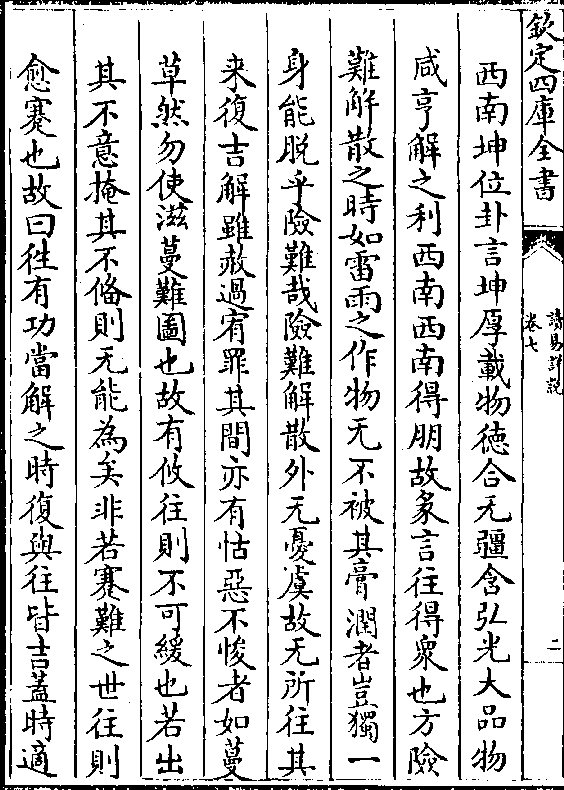 欽定四庫全書
讀易詳說
卷七
二
西南坤位卦言坤厚載物徳合无疆含弘光大品物
咸亨解之利西南西南得朋故彖言往得衆也方險
難解散之時如雷雨之作物无不被其膏潤者豈獨一
身能脱乎險難哉險難解散外无憂虞故无所往其
来復吉解雖赦過宥罪其間亦有怙惡不悛者如蔓
草然勿使滋蔓難圖也故有攸往則不可緩也若出
其不意掩其不偹則无能為矣非若蹇難之世往則
愈蹇也故曰徃有功當解之時復與往皆吉蓋時適